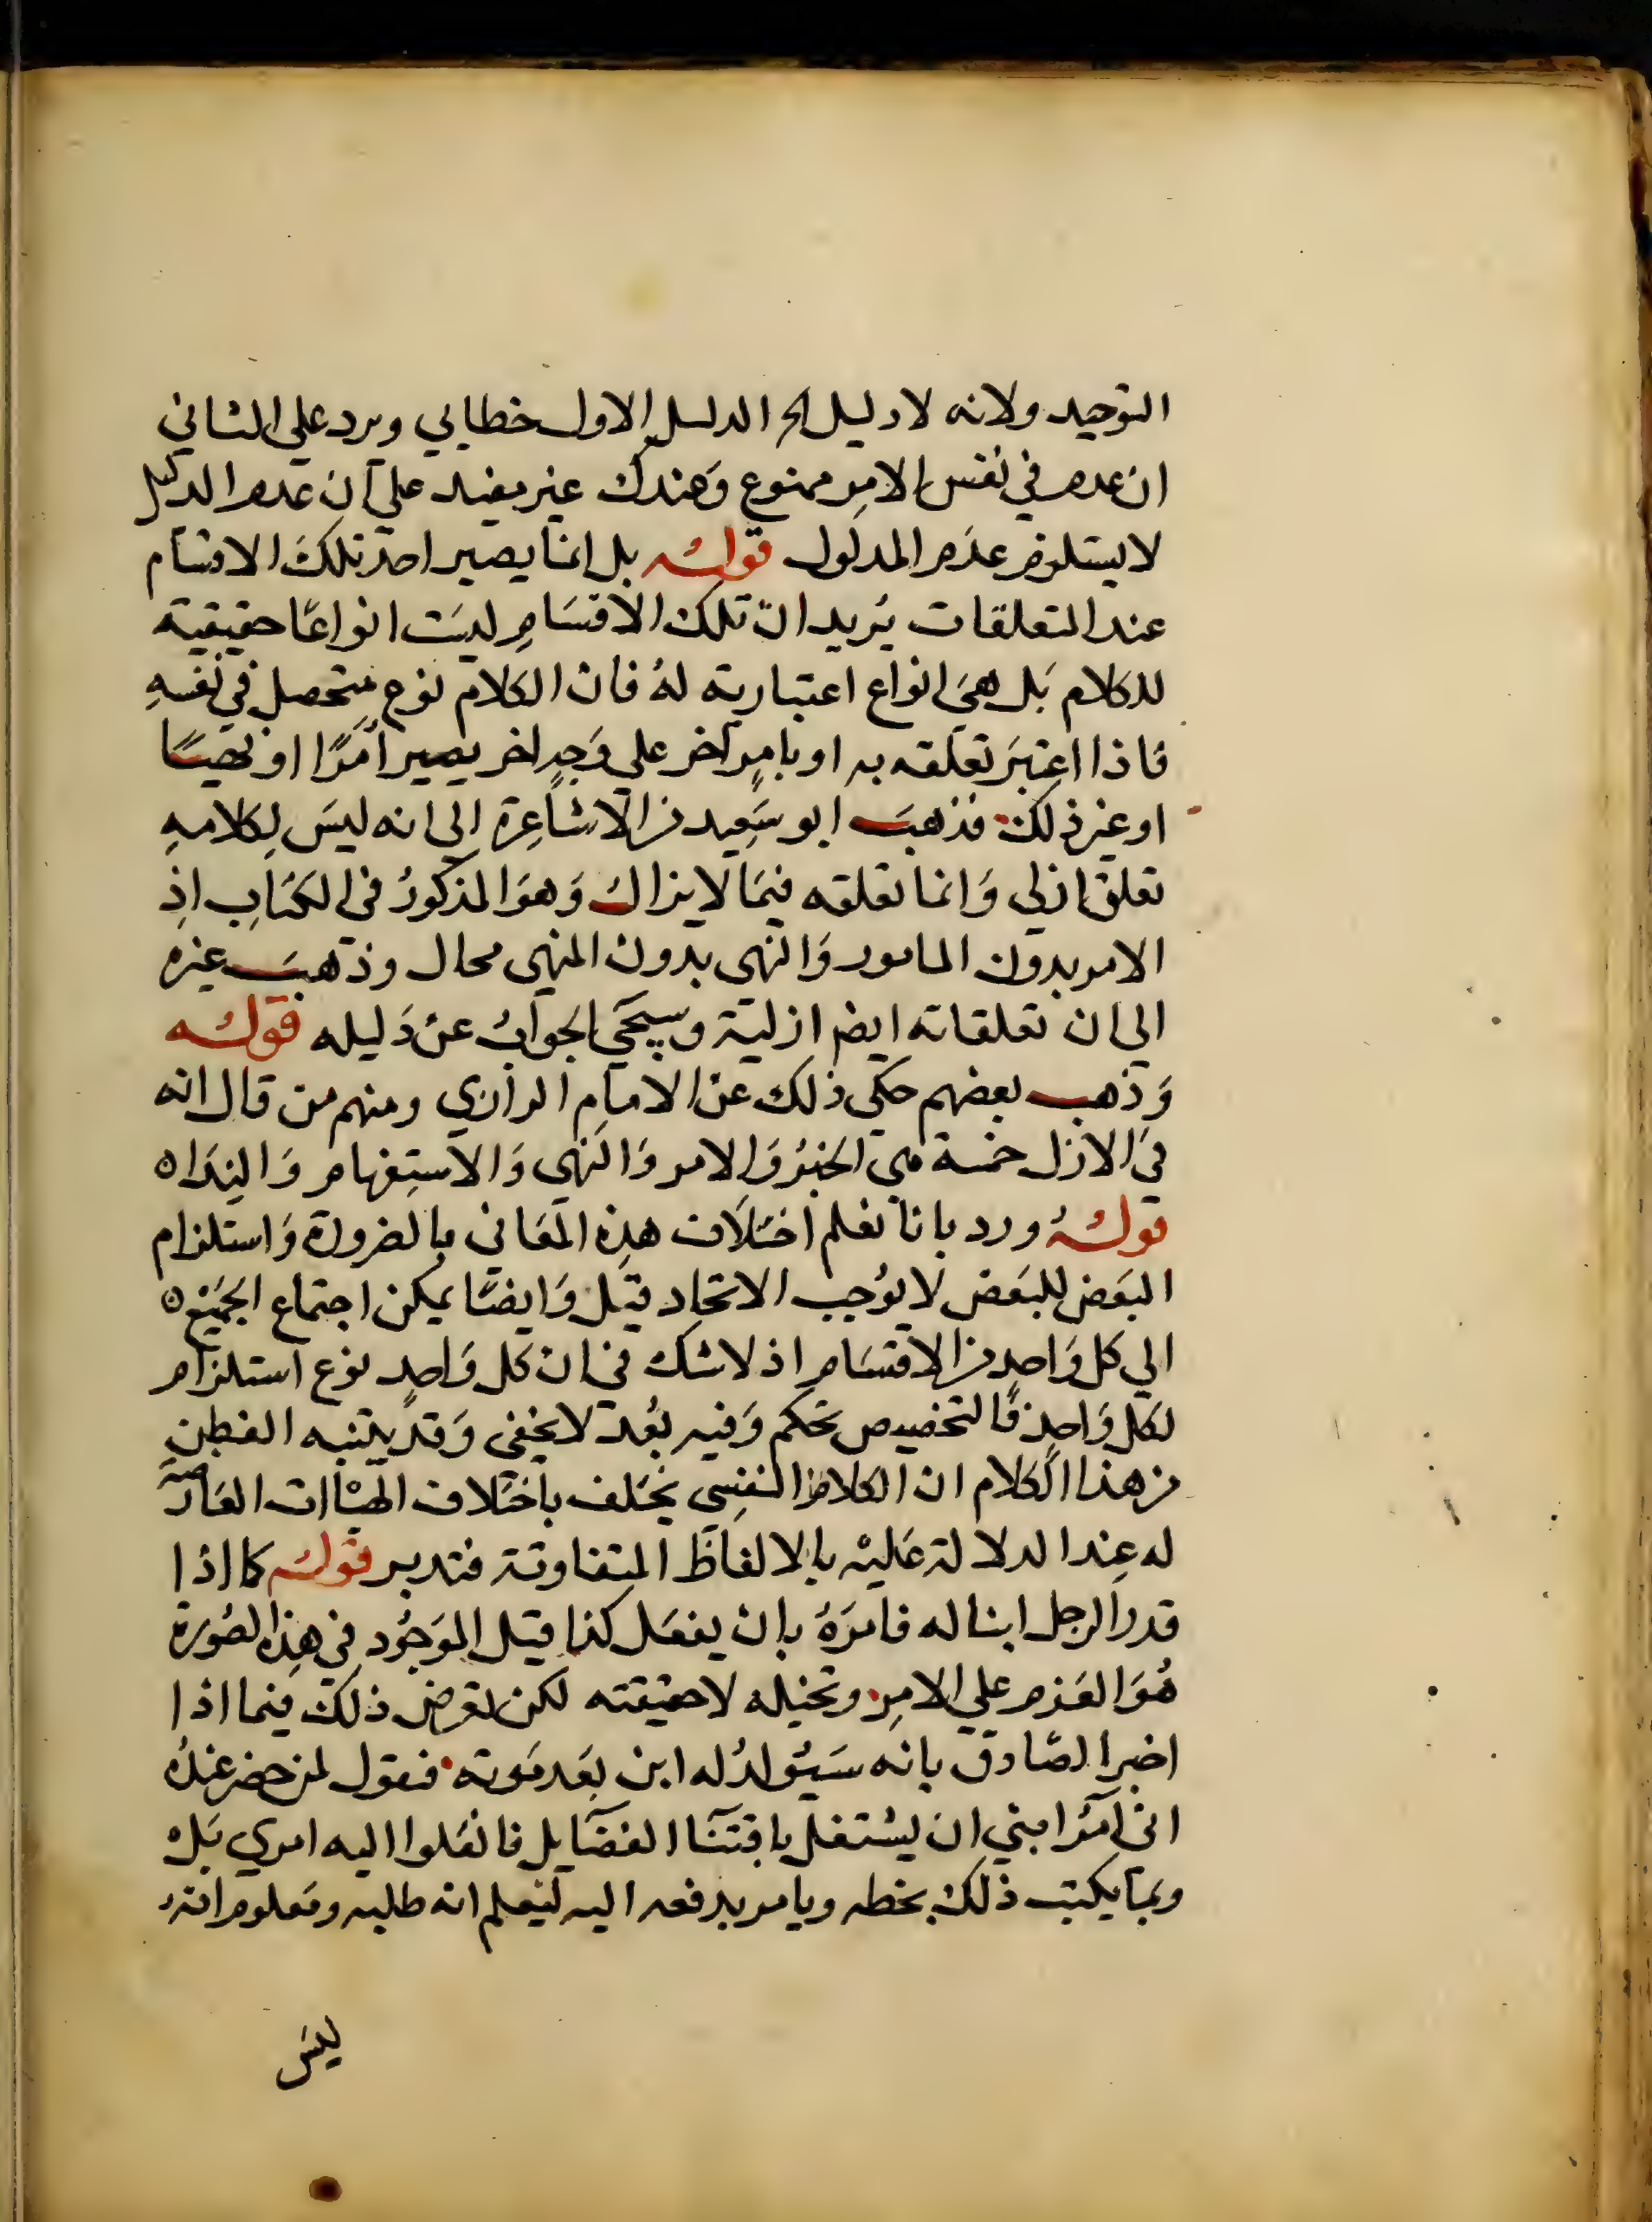 التوحيد ولانه لا دليل الخ الدليل الاول خطابي ويرد علي الثاني
ان عدمه في نفس الامر ممنوع وعندك غير مفيد علي ان عدم الدليل
لا يستلزم عدم المدلول قوله بل انما يصير احد تلك الاقسام
عند التعلقات يريد ان تلك الاقسام ليست انواعًا حقيقية
للكلام بل هي انواع اعتبارية له فان الكلام نوع متحصل في نفسه
فاذا اعتبر تعلقه به او بامر آخر علي وجه اخر يصير امرًا او نهيًا
او غير ذلك فذهب ابو سعيد من الاشاعرة الي انه ليس لكلامه
تعلق ازلي وانما تعلقه فيما لا يزال وهو المذكور في الكتاب اذ
الامر بدون المامور والنهي بدون المنهي محال وذهب غيره
الي ان تعلقاته ايضا ازلية وسيجي الجواب عن دليله قوله
وذهب بعضهم حكي ذلك عن الامام الرازي ومنهم من قال انه
في الازل خمسة هي الخبر والامر والنهي والاستفهام والنداه
قوله ورد بانا نعلم اختلاف هذه المعاني بالضرورة واستلزام
البعض للبعض لا يوجب الاتحاد قيل وايضًا يمكن اجتماع الجميع ه
الي كل واحد من الاقسام اذ لا شك في ان كل واحد نوع استلزام
لكل واحد فالتخصيص تحكم وفيه بعد لا يخفي وقد يتنبه الفطن
من هذا الكلام ان الكلام النفسي يختلف باختلاف الهيأات العارضة
له عند الدلالة عليه بالالفاظ المتفاوتة فتدبر قوله كما اذا
قدر الرجل ابنا له فامره بان يفعل كذا قيل الموجود في هذه الصورة
هو العزم علي الامر وتخيله لا حقيقته لكن لفرض ذلك فيما اذا
اخبر الصادق بانه سيولد له ابن بعد موته فنقول لمن حضر عنده
اني آمر ابني ان يشتغل باقتنا الفضايل فانقلوا اليه امري بل
ربما يكتب ذلك بخطه ويامر بدفعه اليه ليعلم انه طلبه ومعلوم انه
ليس